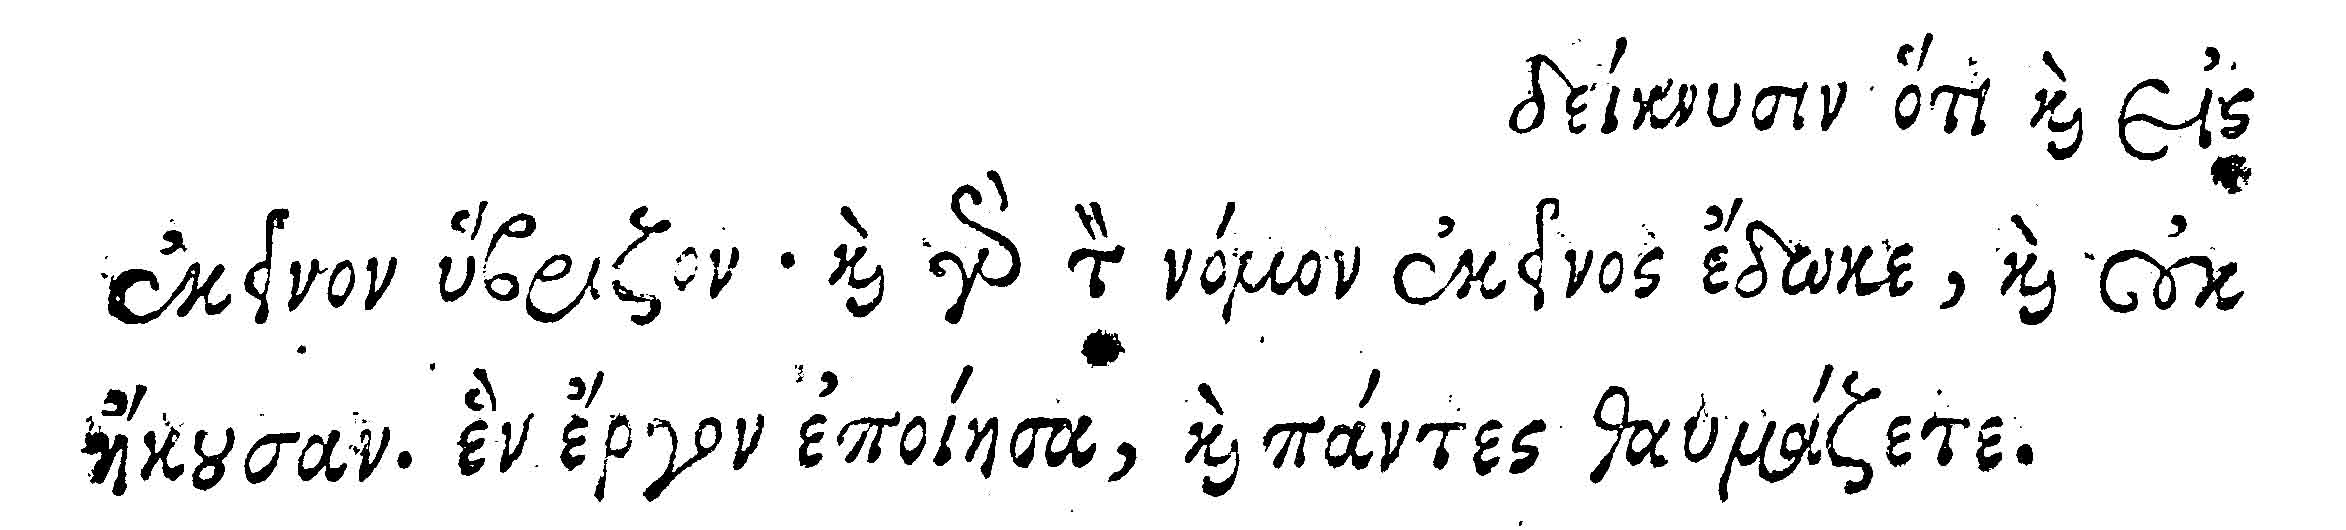 δείκνυσιν ὅτι καὶ εἰς
ἐκεῖνον ὕβριζον · καὶ γὰρ τὸν νόμον ἐκεῖνος ἔδωκε, καὶ οὐκ
ἤκουσαν. ἓν ἔργον ἐποίησα, καὶ πάντες θαυμάζετε.